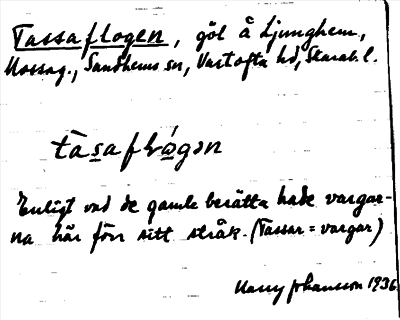 Tassaflogen, göl å Ljunghem,
Mossag., Sandhems sn, Vartofta hd, Skarab. l.
tàsaflógən
Enligt vad de gamle berätta hade vargar-
na här förr sitt stråk. (Tassar = vargar)
Harry Johansson 1936